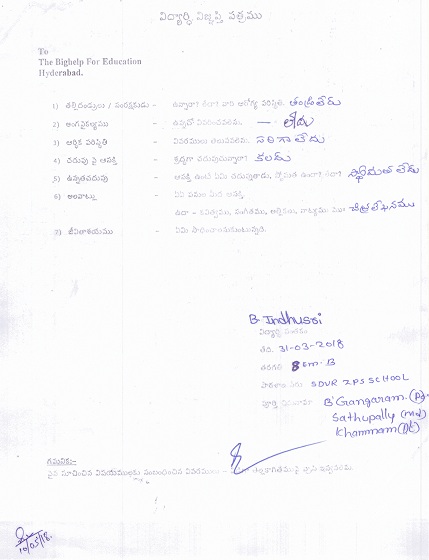 విద్యార్థి విజ్ఞప్తి పత్రము
To
The Bighelp For Education
Hyderabad.
1) తల్లిదండ్రులు / సంరక్షకుడు – ఉన్నారా? లేరా? వారి ఆరోగ్య పరిస్థితి. తండ్రి లేరు
2) అంగవైకల్యము – ఉన్నచో వివరించవలెను. — లేదు
3) ఆర్థిక పరిస్థితి – వివరములు తెలుపవలెను. సరిగా లేదు
4) చదువు పై ఆసక్తి – కష్టపడి చదువుచున్నారా? కలదు
5) ఉన్నతచదువు – ఆసక్తి ఉంటే ఏమి చదువుతారు, స్తోమత ఉందా? లేదా? స్తోమత లేదు
6) అలవాట్లు – ఏఏ పనుల మీద ఆసక్తి.
ఉదా – కవిత్వము, సంగీతము, నాట్యము చిత్రలేఖనము
7) జీవితాశయము – ఏమి సాధించాలనుకుంటున్నారు.
B Indhusri
విద్యార్థి సంతకం
తేది. 31-03-2018
తరగతి 8 EM. B
పాఠశాల పేరు SDVR ZPS SCHOOL
పూర్తి చిరునామా B'Gangaram.
Sathupally (md)
Khammam (Dt)
గమనిక:-
పైన సూచించిన విషయములకు సంబంధించిన వివరములు – తెల్లకాగితముపై వ్రాసి ఇవ్వవలెను.
10/05/18.